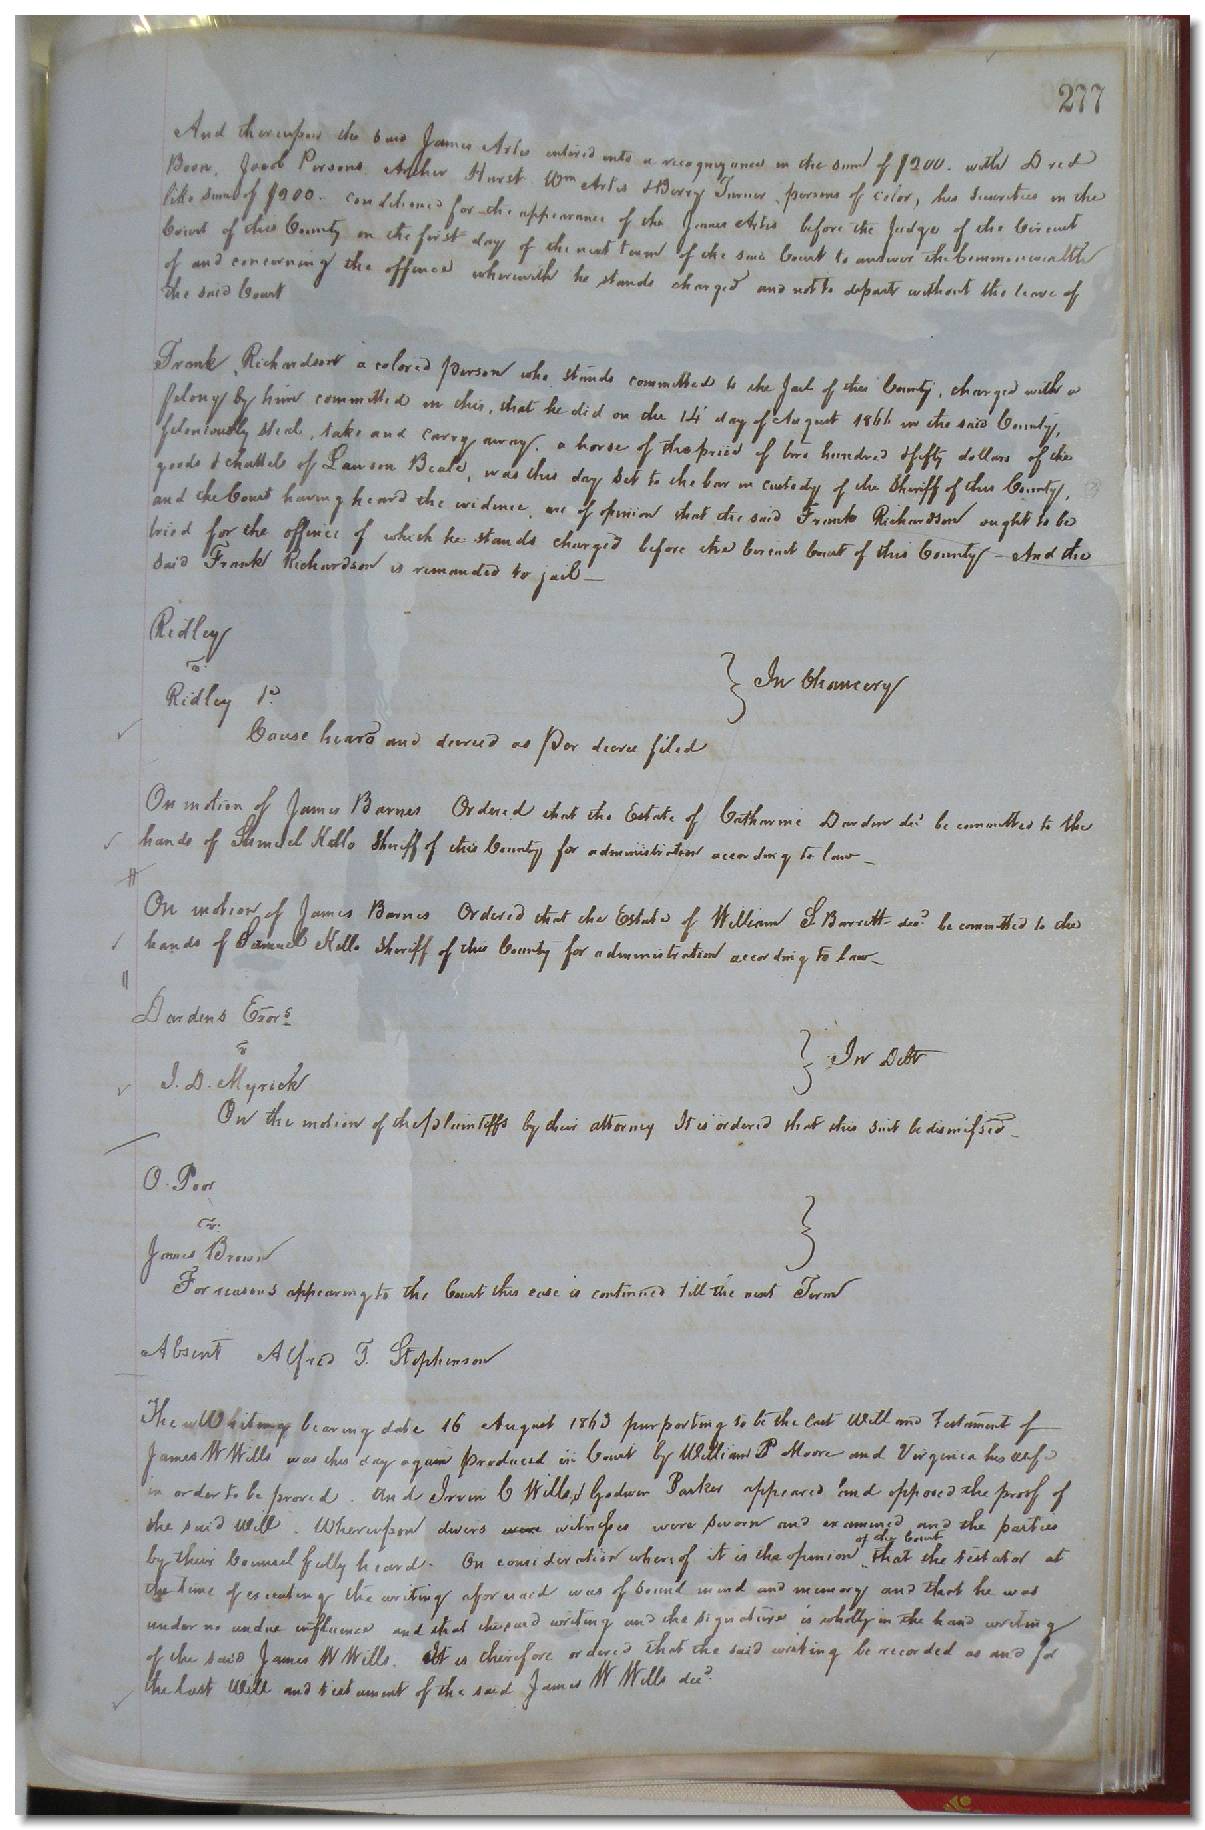 277
And thereupon the said James Artis entered into a recognizance in the sum of $200. with Dred
Boon, Jacob Persons, Archer Hurst Wm Artis & Berry Turner, persons of color, his Securities in the
like sum of $200. conditioned for the appearance of the James Artis before the Judge of the Circuit
Court of this County on the first day of the next term of the said Court to answer the Commonwealth
of and concerning the offence wherewith he stands charged and not to depart without the leave of
the said Court
Frank Richardson a colored person who stands committed to the Jail of this County, charged with a
felony by him committed in this, that he did on the 14 day of August 1866 in the said County,
feloniously steal, take and carry away, a horse of the price of two hundred & fifty dollars of the
goods & chattels of Lawson Beale, was this day set to the bar in custody of the Sheriff of this County,
and the Court having heard the evidence, are of opinion that the said Frank Richardson ought to be
tried for the offence of which he stands charged before the Circuit Court of this County – And the
said Frank Richardson is remanded to jail –
Ridley
vs
Ridley
In Chancery
Cause heard and decreed as Per decree filed
On motion of James Barnes Ordered that the Estate of Catharine Darden decd be committed to the
hands of Samuel Kello Sheriff of this County for administration according to law –
On motion of James Barnes Ordered that the Estate of William S Barrett decd be committed to the
hands of Samuel Kello Sheriff of this County for administration according to law –
Dardens Exors
vs
J. D. Myrick
In Debt
On the motion of the plaintiffs by their attorney It is ordered that this suit be dismissed –
O. Poor
vs
James Brown
For reasons appearing to the Court this case is continued till the next Term
Absent Alfred T. Stephenson
The writing bearing date 16 August 1863 purporting to be the last Will and Testament of
James W Wills was this day again produced in Court by William P Moore and Virginia his wife
in order to be proved. And Irvin C Wills, & Godwin Parker appeared and opposed the proof of
the said Will. Whereupon divers were witnesses were sworn and examined and the parties
by their Counsel fully heard. On consideration whereof it is the opinion of the Court that the testator at
the time of executing the writing aforesaid was of sound mind and memory and that he was
under no undue influence and that the said writing and the signature is wholly in the hand writing
of the said James W Wills. It is therefore ordered that the said writing be recorded as and for
the last Will and testament of the said James W Wills decd.